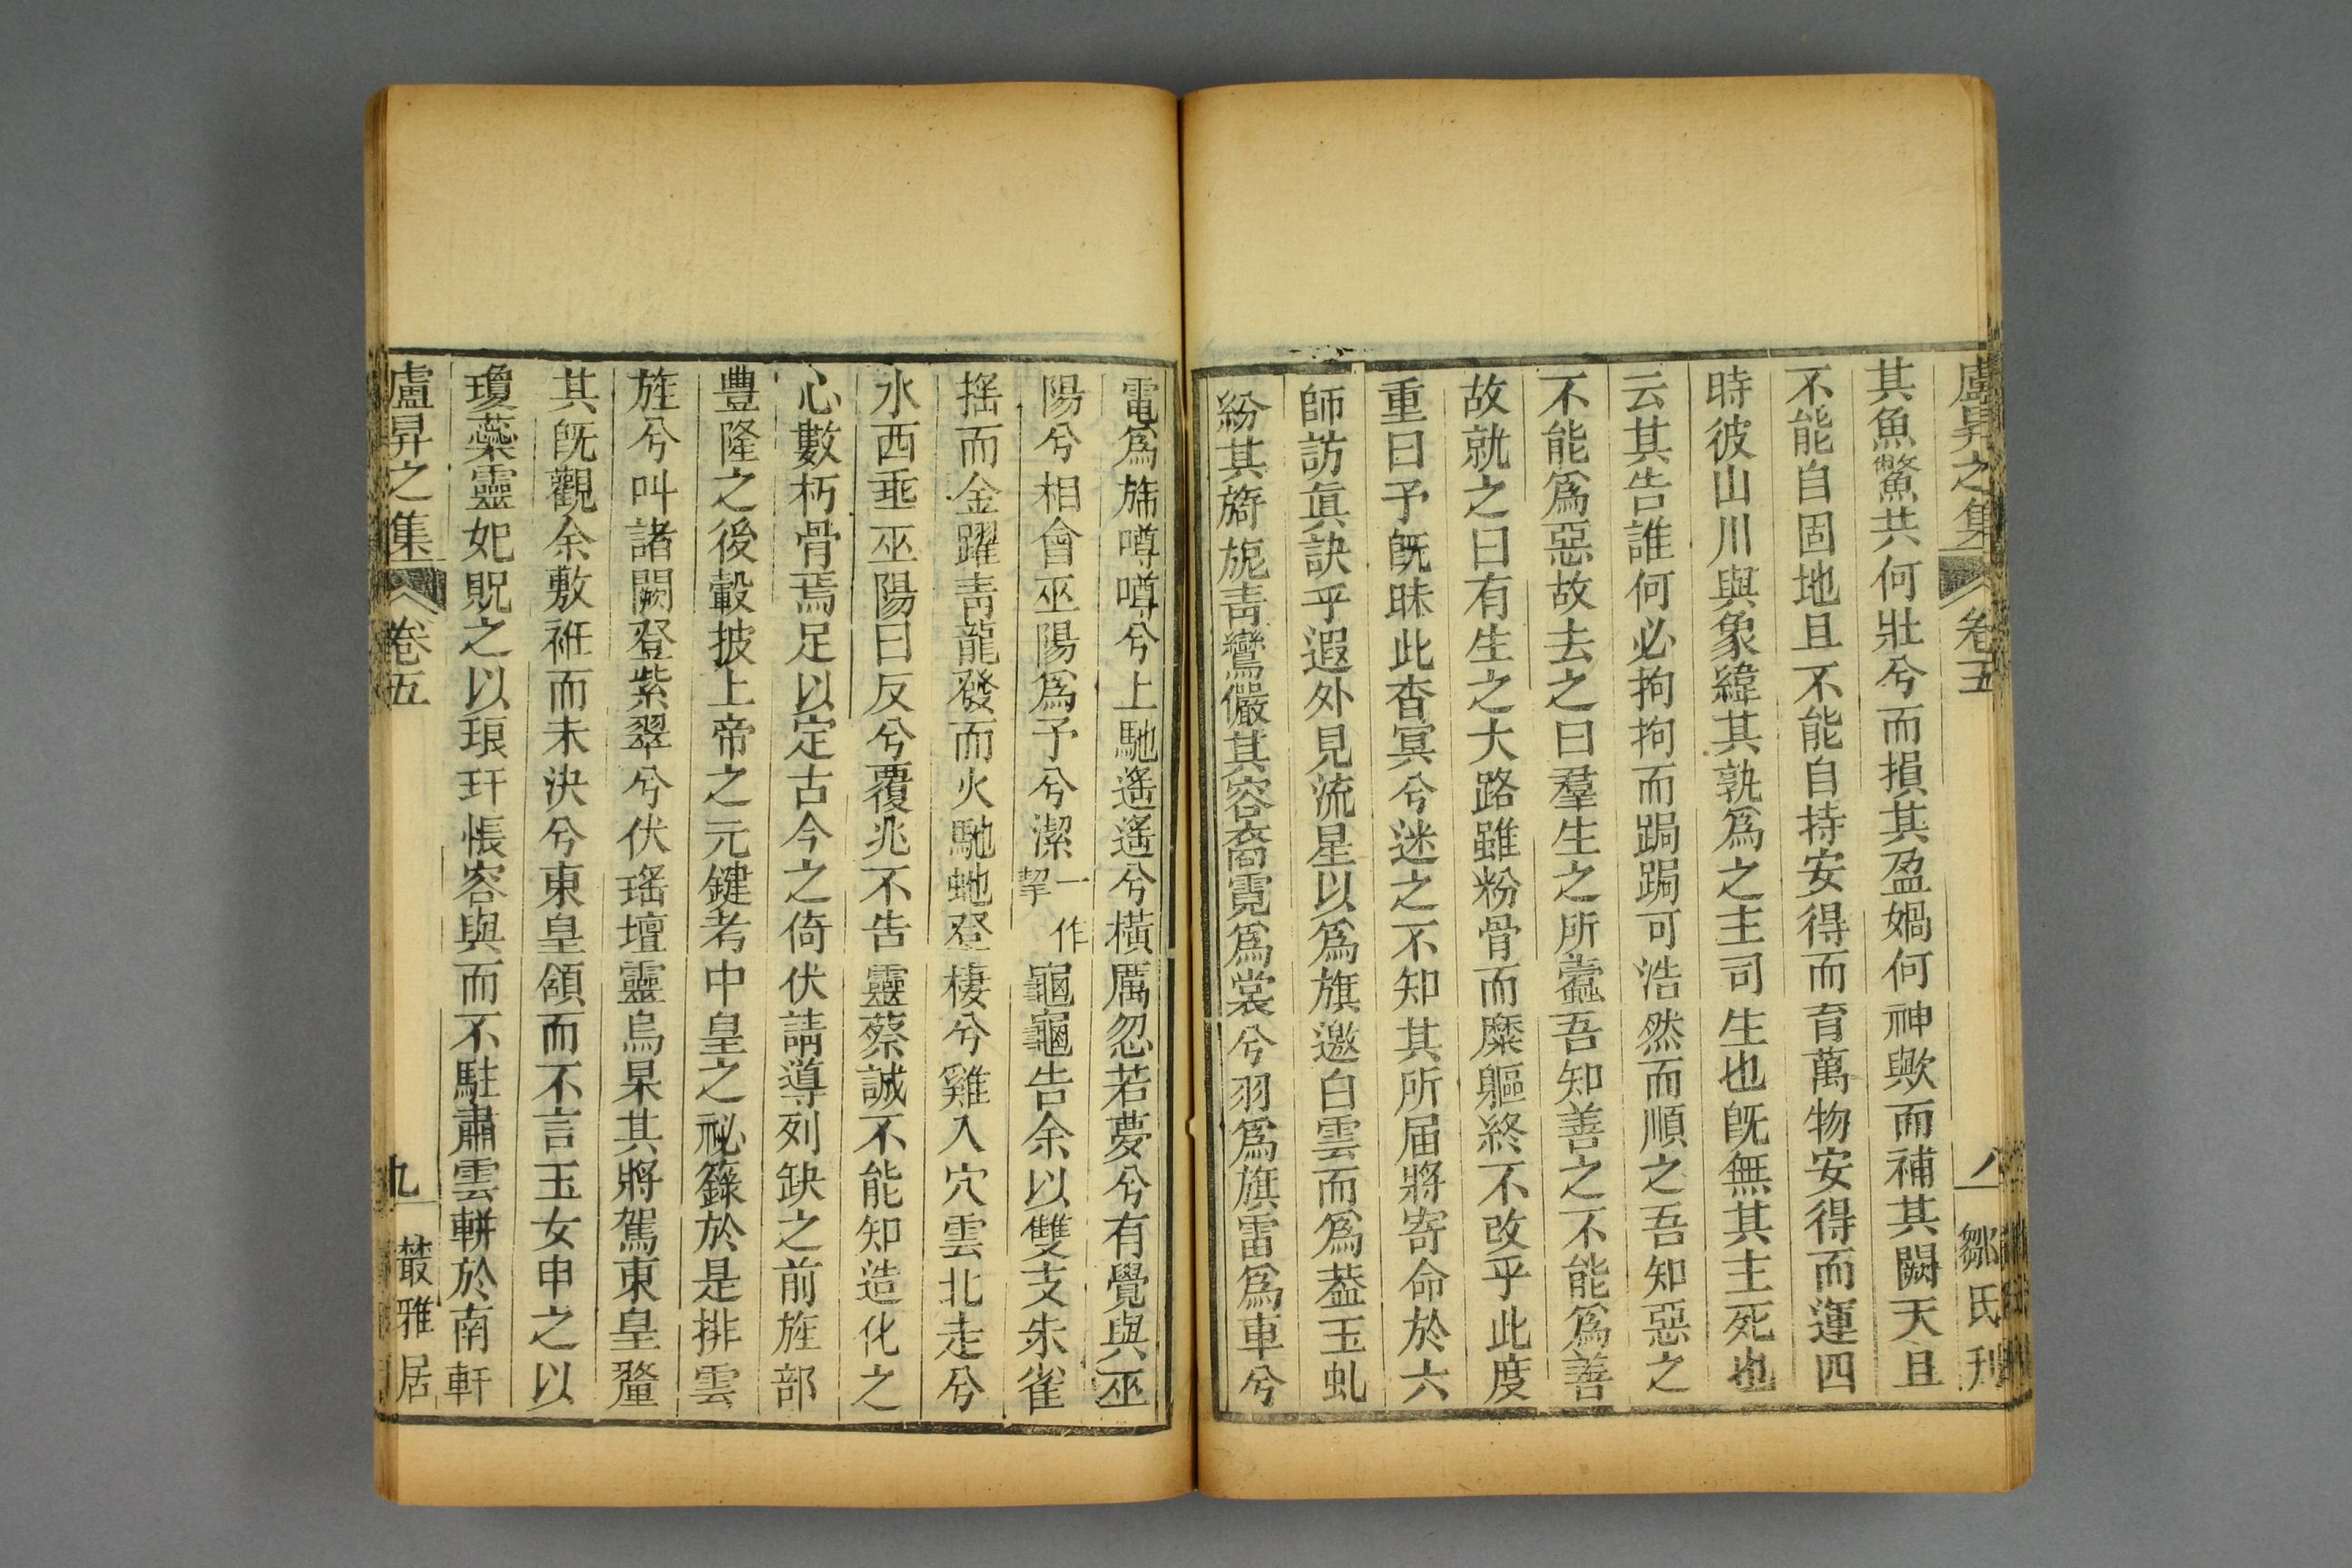 盧昇之集 卷五 八 鄒氏刊
其魚鱉共何壯兮而損其盈媧何神歟而補其闕天且
不能自固地且不能自持安得而育萬物安得而運四
時彼山川與象緯其孰爲之主司生也旣無其主死也
云其告誰何必拘拘而跼跼可浩然而順之吾知惡之
不能爲惡故去之曰羣生之所蠧吾知善之不能爲善
故就之曰有生之大路雖粉骨而糜軀終不改乎此度
重曰予旣昧此杳冥兮迷之不知其所届將寄命於六
師訪眞訣乎遐外見流星以爲旗邀白雲而爲葢玉虬
紛其旖旎靑鸞儼其容裔霓爲裳兮羽爲旗雷爲車兮
電爲旆噂噂兮上馳遙遙兮橫厲忽若夢兮有覺與巫
陽兮相會巫陽爲予兮潔一作挈龜龜告余以雙支朱雀
摇而金躍靑龍發而火馳虵登棲兮雞入穴雲北走兮
水西乖巫陽曰反兮覆兆不告靈蔡誠不能知造化之
心數朽骨焉足以定古今之倚伏請導列缺之前旌部
豐隆之後轂披上帝之元鍵考中皇之祕籙於是排雲
旌兮叫諸闕登紫翠兮伏瑤壇靈烏杲其將駕東皇釐
其旣觀余敷衽而未決兮東皇頷而不言玉女申之以
瓊蘂靈妃貺之以琅玕悵容與而不駐肅雲軿於南軒
盧昇之集 卷五 九 叢雅居